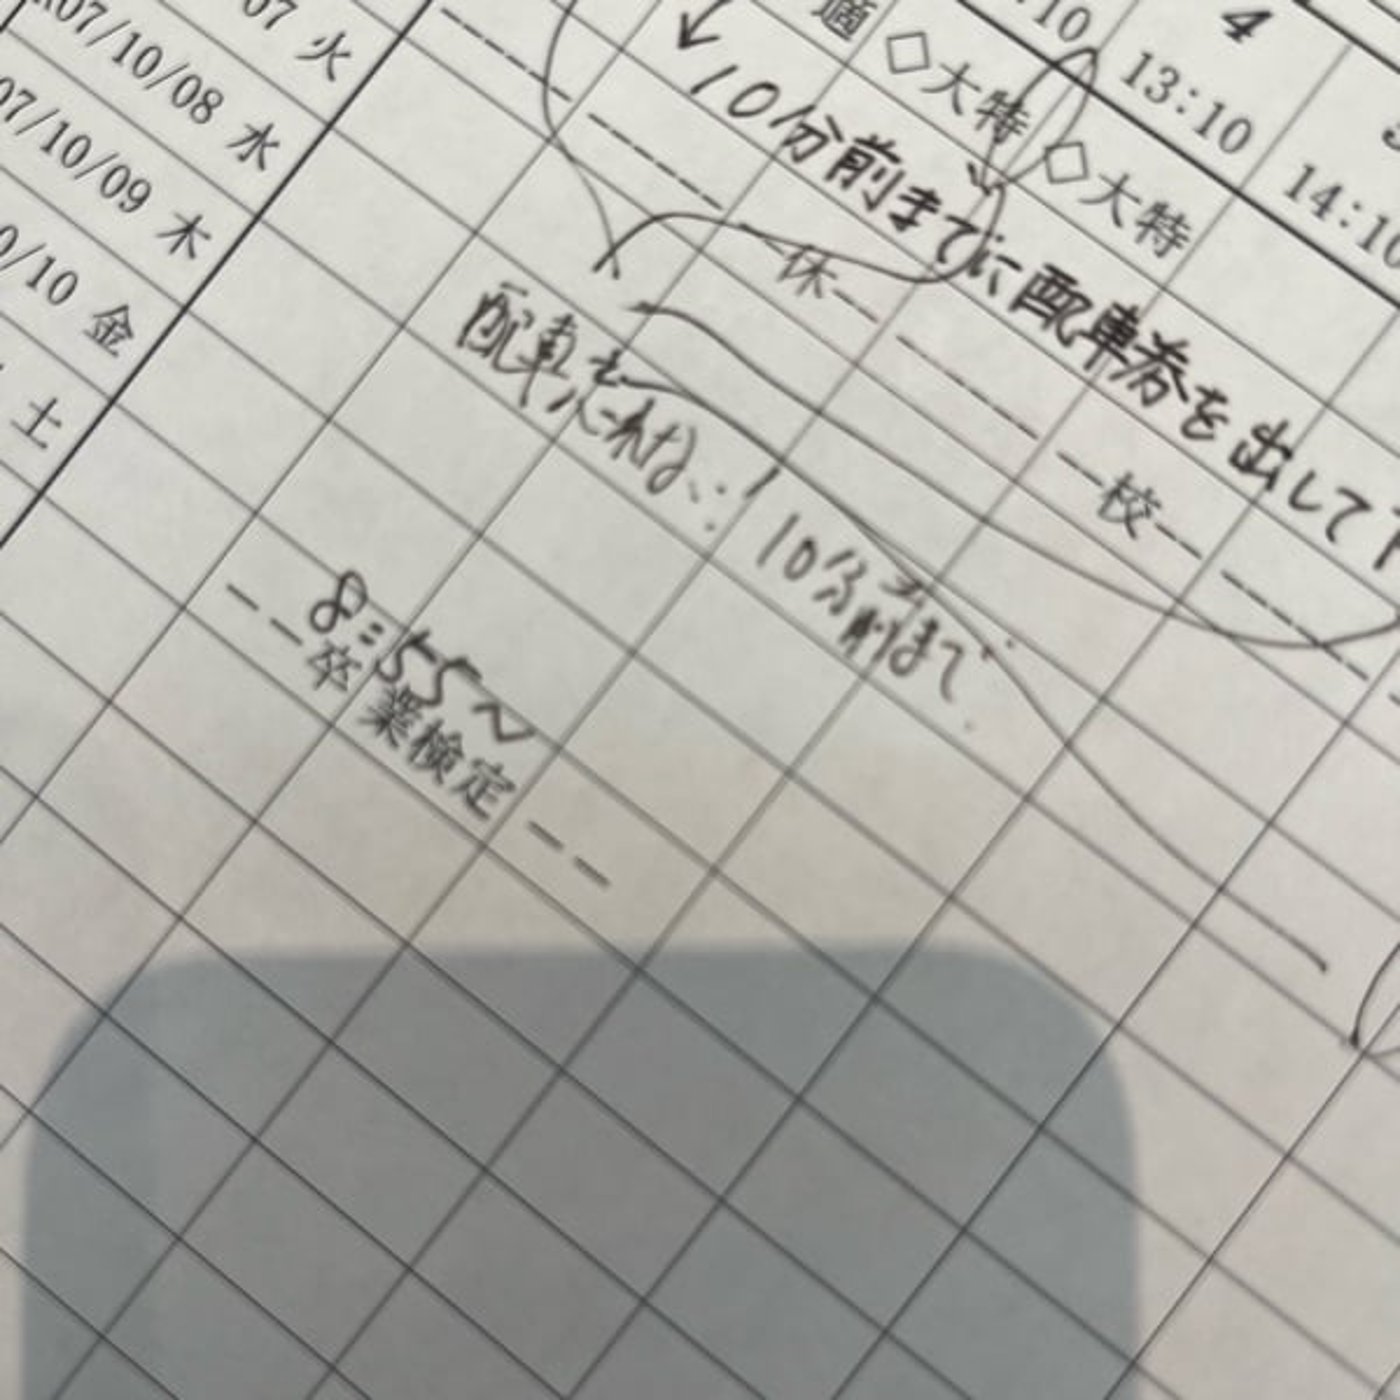 4
:10 13:10 14:10
07 火 適 ◇大特 ◇大特
07/10/08 水
↓10分前までに配車券を出して下
07/10/09 木 ------休------校------
0/10 金
配車を
忘れない! 10分前まで
土 8:55~
--卒業検定--